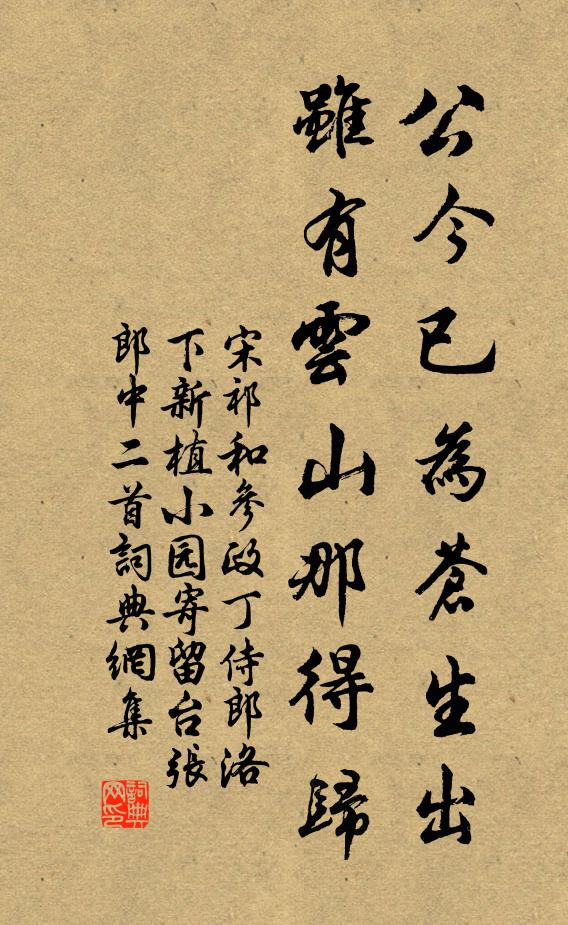 公今已為蒼生出
雖有雲山那得歸
宋祁和參政丁侍郎洛
下新植小园寄留台張
郎中二首詞典網集
詞典
网印